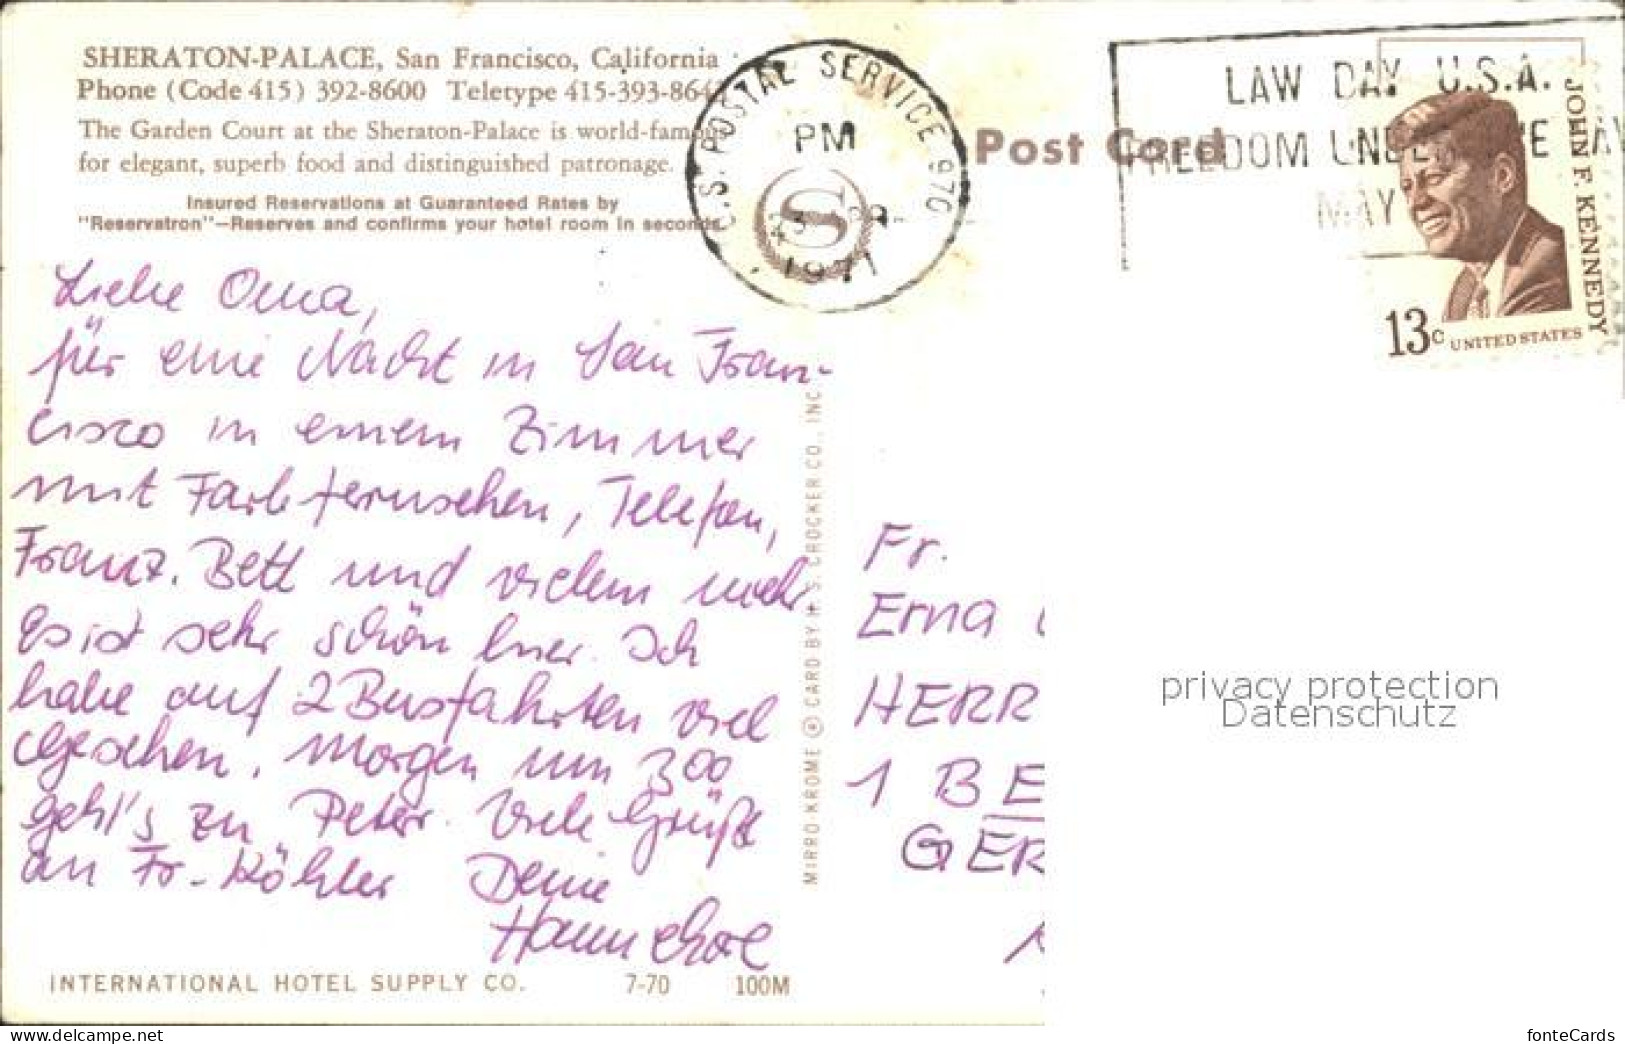 SHERATON-PALACE, San Francisco, California
Phone (Code 415) 392-8600 Teletype 415-393-864
The Garden Court at the Sheraton-Palace is world-famous
for elegant, superb food and distinguished patronage.
Insured Reservations at Guaranteed Rates by
"Reservatron"—Reserves and confirms your hotel room in seconds.
U.S. POSTAL SERVICE 970
PM
1971
Post Card
LAW DAY U.S.A.
FREEDOM UNDER THE LAW
MAY
JOHN F. KENNEDY
13c UNITED STATES
Liebe Oma,
für eine Nacht in San Fran-
cisco in einem Zimmer
mit Farbfernsehen, Telefon,
Franz. Bett und vielem mehr
Es ist sehr schön hier. Ich
habe auf 2 Busfahrten viel
gesehen. Morgen um 300
geht's zu Peter. Viele Grüße
an Fr. Köhler Deine
Hannelore
MIRRO-KROME ® CARD BY H. S. CROCKER CO., INC.
Fr.
Erna
HERR
1 BE
GER
privacy protection
Datenschutz
INTERNATIONAL HOTEL SUPPLY CO. 7-70 100M
www.delcampe.net
fonteCards